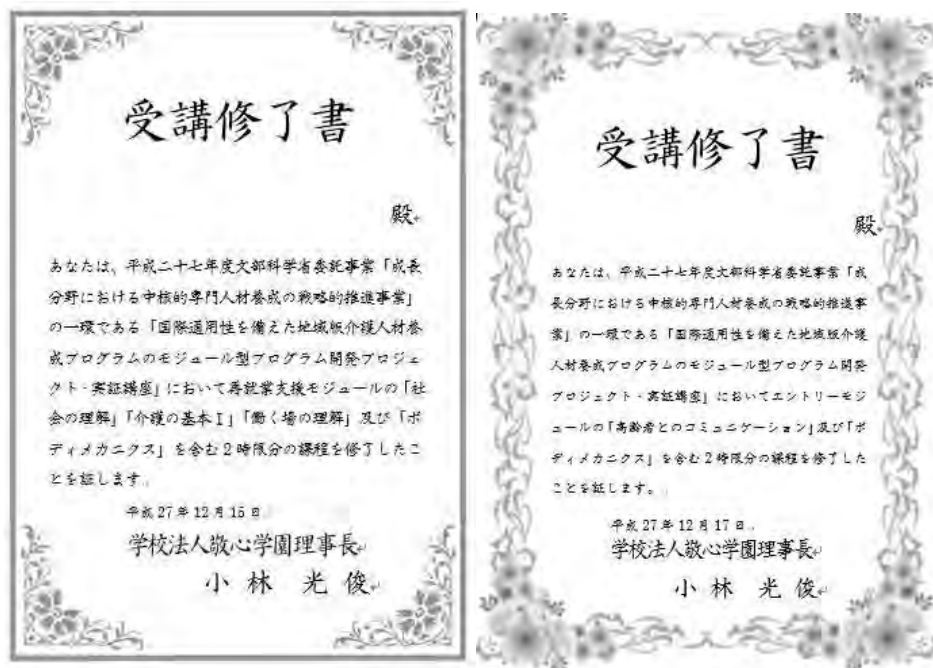 受講修了書
殿
あなたは、平成二十七年度文部科学省委託事業「成長
分野における中核的専門人材養成の戦略的推進事業」
の一環である「国際通用性を備えた地域版介護人材養
成プログラムのモジュール型プログラム開発プロジェ
クト・実証講座」において再就業支援モジュールの「社
会の理解」「介護の基本Ⅰ」「働く場の理解」及び「ボ
ディメカニクス」を含む2時限分の課程を修了したこ
とを証します。
平成27年12月15日
学校法人敬心学園理事長
小林 光俊
受講修了書
殿
あなたは、平成二十七年度文部科学省委託事業「成
長分野における中核的専門人材養成の戦略的推進事
業」の一環である「国際通用性を備えた地域版介護
人材養成プログラムのモジュール型プログラム開発
プロジェクト・実証講座」においてエントリーモジ
ュールの「高齢者とのコミュニケーション」及び「ボ
ディメカニクス」を含む2時限分の課程を修了した
ことを証します。
平成27年12月17日
学校法人敬心学園理事長
小林 光俊